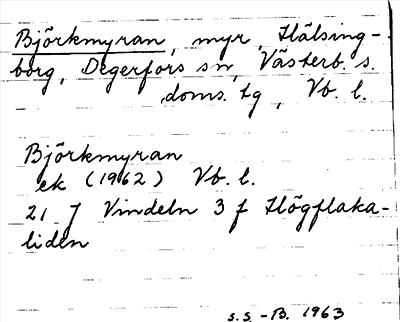 Björkmyran, myr, Hälsing-
borg, Degerfors sn, Västerb. s.
doms. tg, Vb. l.
Björkmyran
ek (1962) Vb. l.
21 J Vindeln 3 f Högflaka-
liden
s.s.-B. 1963